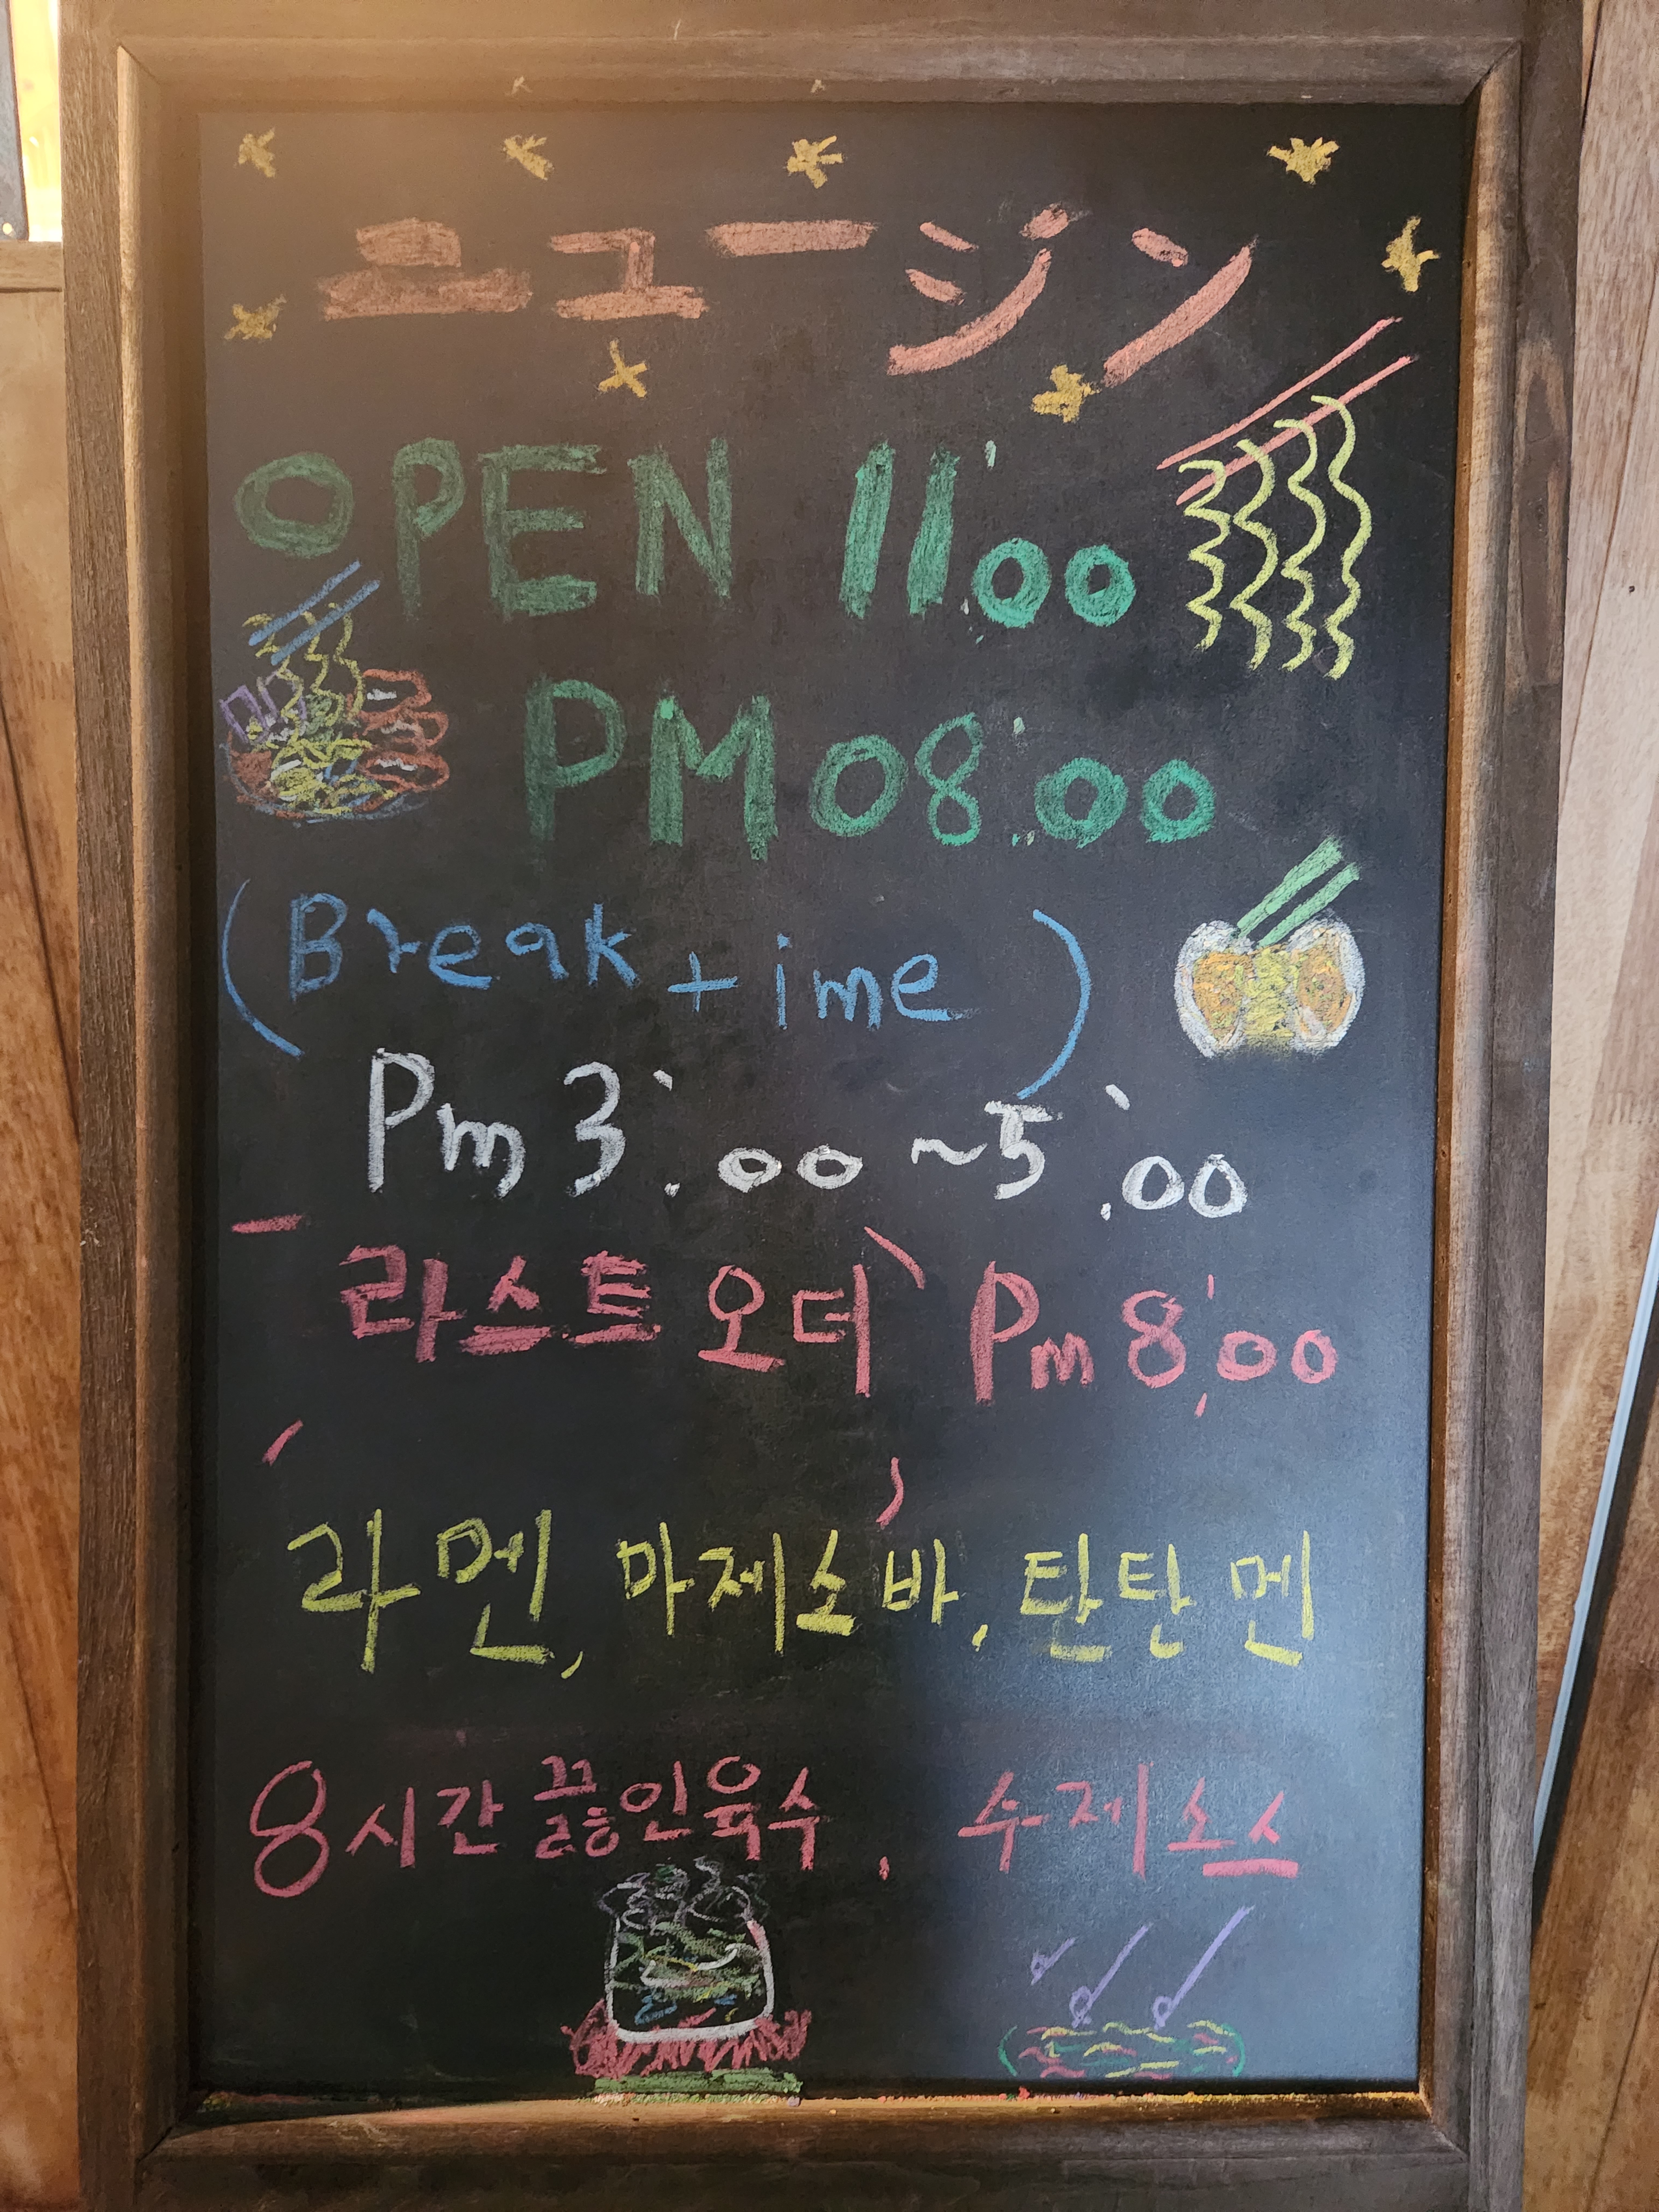 ニュージン
OPEN 11:00
PM 08:00
(Break time)
Pm 3:00 ~ 5:00
라스트 오더 Pm 8:00
라멘, 마제소바, 탄탄멘
8시간 끓인육수, 수제소스